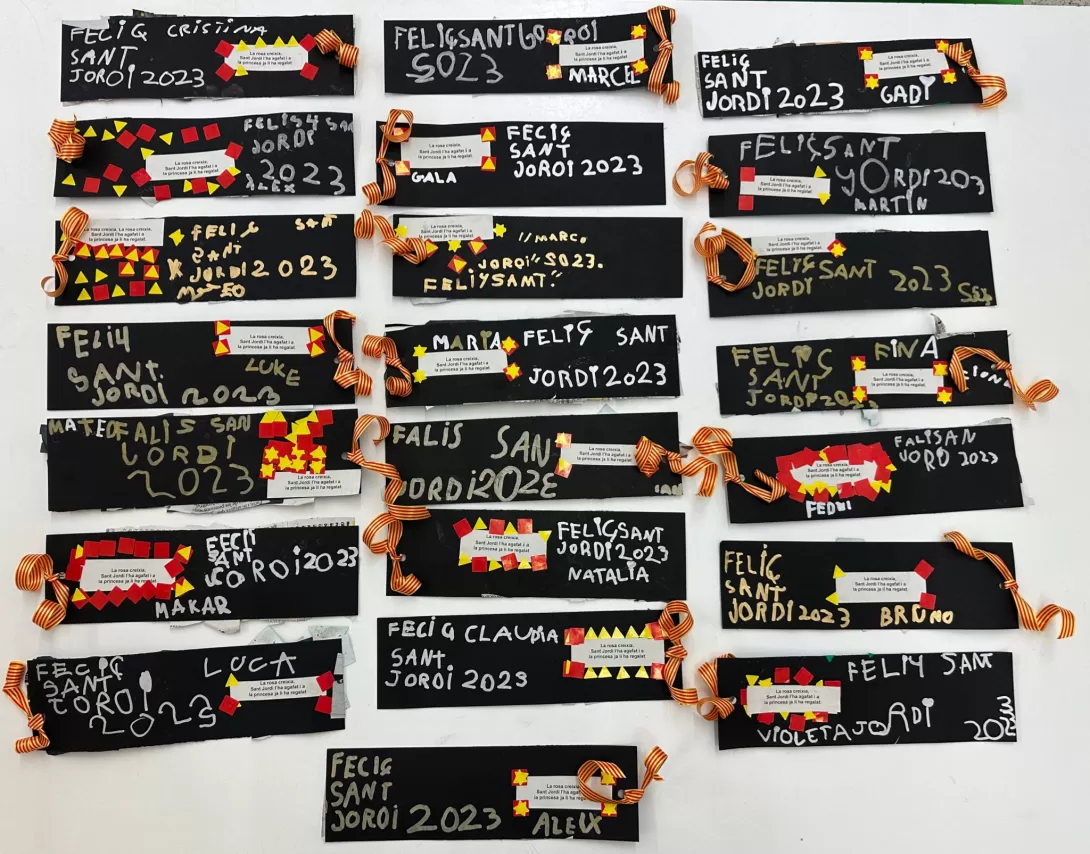 FECIG CRISTINA
SANT
JOROI 2023
La rosa creixia,
Sant Jordi l'ha agafat i a
la princesa ja li ha regalat
FELIÇSANTGOROI
SO23
La rosa creixia,
Sant Jordi l'ha agafat i a
la princesa ja li ha regalat
MARCEL
FELIÇ
SANT
JORDI 2023
La rosa creixia,
Sant Jordi l'ha agafat i a
la princesa ja li ha regalat
GADI
FELIS4 SAN
JORDI
2023
ALEX
La rosa creixia,
Sant Jordi l'ha agafat i a
la princesa ja li ha regalat
La rosa creixia,
Sant Jordi l'ha agafat i a
la princesa ja li ha regalat
GALA
FECIÇ
SANT
JOROI 2023
FELIÇSANT
yORDI203
MARTIN
La rosa creixia,
Sant Jordi l'ha agafat i a
la princesa ja li ha regalat
La rosa creixia,
Sant Jordi l'ha agafat i a
la princesa ja li ha regalat
FELIÇ SAN
SANT
JORDI2023
La rosa creixia,
Sant Jordi l'ha agafat i a
la princesa ja li ha regalat
MARC
JOROI SO23.
FELIYSAMT.
La rosa creixia,
Sant Jordi l'ha agafat i a
la princesa ja li ha regalat
FELIÇSANT 2023
JORDI
FELI4
SANT.
JORDI 2023
La rosa creixia,
Sant Jordi l'ha agafat i a
la princesa ja li ha regalat
LUKE
MARIA FELIÇ SANT
JORDI2023
La rosa creixia,
Sant Jordi l'ha agafat i a
la princesa ja li ha regalat
FELIÇ FINA
SANT
La rosa creixia,
Sant Jordi l'ha agafat i a
la princesa ja li ha regalat
MATEOFALIS SAN
LORDI
2023
La rosa creixia,
Sant Jordi l'ha agafat i a
la princesa ja li ha regalat
FALIS SAN
La rosa creixia,
Sant Jordi l'ha agafat i a
la princesa ja li ha regalat
FALISAN
JORD 2023
La rosa creixia,
Sant Jordi l'ha agafat i a
la princesa ja li ha regalat
FECIÇ
SANT
JOROI2023
La rosa creixia,
Sant Jordi l'ha agafat i a
la princesa ja li ha regalat
MAKAR
La rosa creixia,
Sant Jordi l'ha agafat i a
la princesa ja li ha regalat
FELIÇSANT
JORDI2023
NATALIA
FELIÇ
SANT
JORDI2023 BRUNO
La rosa creixia,
Sant Jordi l'ha agafat i a
la princesa ja li ha regalat
FECIÇ LUCA
SANT
JOROI
2023
La rosa creixia,
Sant Jordi l'ha agafat i a
la princesa ja li ha regalat
FECIG CLAUDIA
SANT.
JOROI 2023
La rosa creixia,
Sant Jordi l'ha agafat i a
la princesa ja li ha regalat
FELIY SANT
VIOLETAJORDI 2023
La rosa creixia,
Sant Jordi l'ha agafat i a
la princesa ja li ha regalat
FECIG
SANT
JOROI 2023
La rosa creixia,
Sant Jordi l'ha agafat i a
la princesa ja li ha regalat
ALEIX